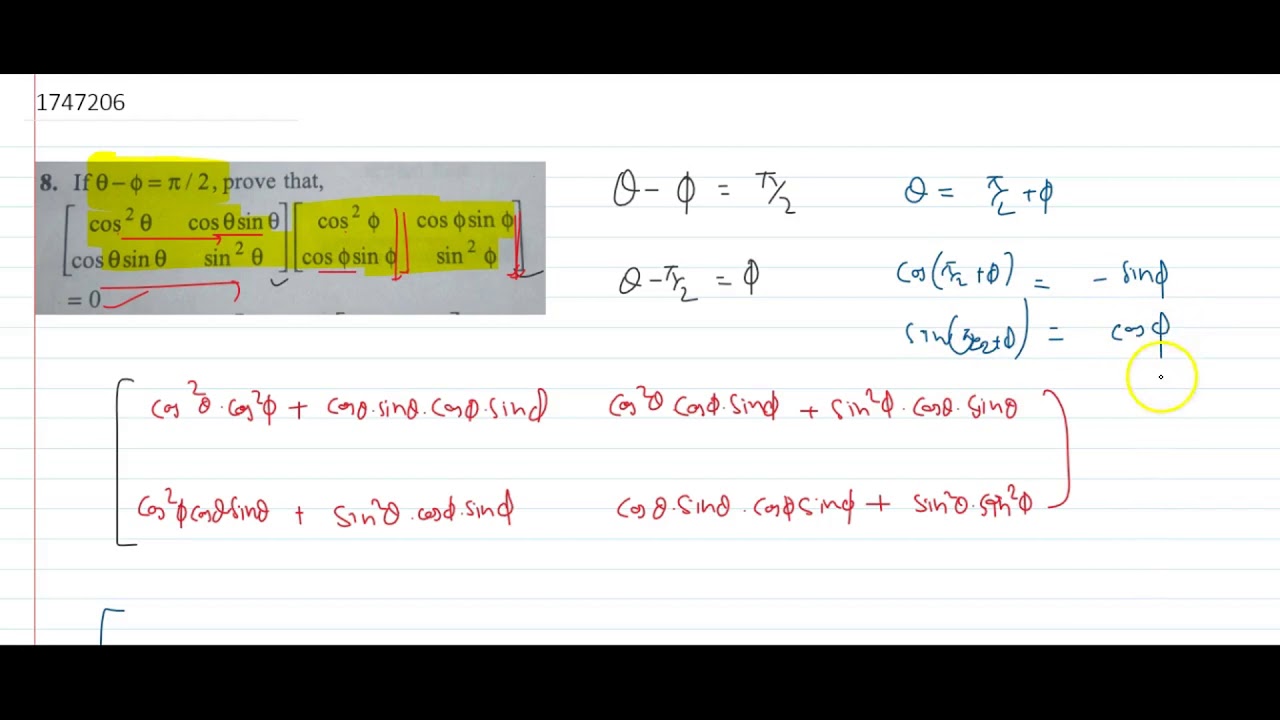 1747206
8. If θ – ϕ = π / 2, prove that,
[cos² θ cos θ sin θ] [cos² ϕ cos ϕ sin ϕ]
[cos θ sin θ sin² θ] [cos ϕ sin ϕ sin² ϕ]
= 0
θ - ϕ = π/2
θ - π/2 = ϕ
θ = π/2 + ϕ
cos(π/2 + ϕ) = - sinϕ
sin(π/2 + ϕ) = cosϕ
cos²θ . cos²ϕ + cosθ . sinθ . cosϕ . sinϕ cos²θ cosϕ . sinϕ + sin²ϕ . cosθ . sinθ
cos²ϕ cosθ sinθ + sin²θ . cosϕ . sinϕ cosθ . sinθ . cosϕ sinϕ + sin²θ . sin²ϕ